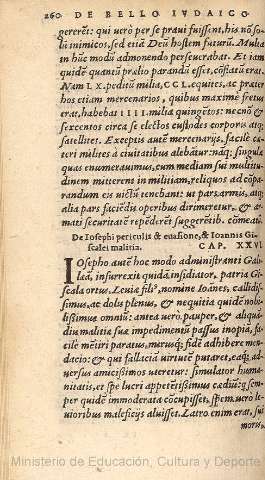 260 DE BELLO IVDAICO
gererēt: qui uerò per se praui fuissent, his nō so-
lū inimicos, sed etiā Deū hostem futurū. Multa
in hūc modū admonendo perseuerabat. Et iam
quidē quantū prælio parandi esset, cōflatū erat.
Nam LX. peditū milia, CCL. equites, ac præter
hos etiam mercenarios, quibus maximè fretus
erat, habebat IIII. milia quingētos: necnō &
sexcentos circa se electos custodes corporis atq;
satellites. Exceptis autē mercenarijs, facilè cæ-
teri milites à ciuitatibus alebātur: nāq; singulæ
quas enumerauimus, cum mediam sui multitu-
dinem mitterent in militiam, reliquos ad cōpa-
randum eis uictū tenebant: ut pars armis, atq;
alia pars faciēdo operibus dirimeretur, & ar-
mati securitatē repēderēt suggerētib. cōmeatū.
De Iosephi periculis & euasione, & Ioannis Gi-
scalei malitia. CAP. XXVI.
IOsepho autē hoc modo administranti Gali-
læā, insurrexit quidā insidiator, patria Gi-
scala ortus, Leuiæ filiꝰ, nomine Ioānes, callidis-
simus, ac dolis plenus, & nequitia quidē nobi-
lissimus omniū: antea uerò pauper, & aliquā-
diu malitiæ suæ impedimentū passus inopia, fa-
cilè mētiri paratus, mirusq; fidē adhibere men-
dacio: & qui fallacia uirtutē putaret, eaq; ad-
uersus amicissimos uteretur: simulator huma-
nitatis, et spe lucri appetētissimus cædiū: q̃ sem-
per quidē immoderata cōcupisset, spem uerò le-
uioribus maleficijs aluisset. Latro enim erat, su
moris,
Ministerio de Educación, Cultura y Deporte